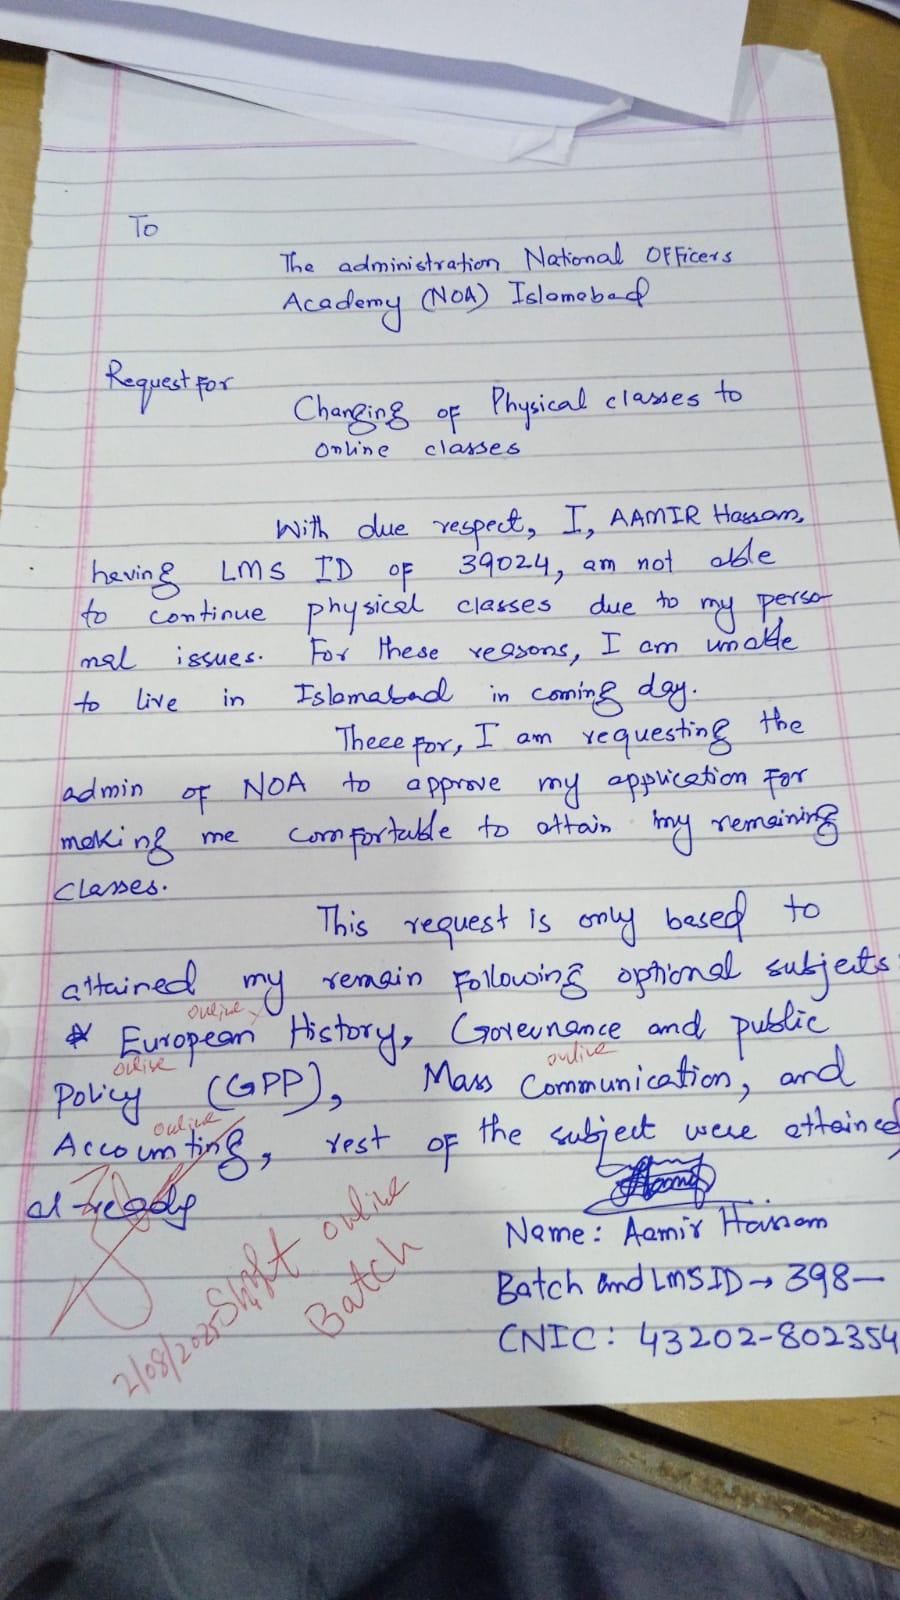 To
The administration National Officers
Academy (NOA) Islamabad
Request For
Changing of Physical classes to
online classes
With due respect, I, AAMIR Hassam,
having LMS ID of 39024, am not able
to continue physical classes due to my perso-
nal issues. For these reasons, I am unable
to live in Islamabad in coming day.
There for, I am requesting the
admin of NOA to approve my application For
making me comfortable to attain my remaining
classes.
This request is only based to
attained my remain Following optional subjects:
online
* European History, Governance and public
online online
Policy (GPP), Mass Communication, and
online
Accounting, rest of the subject were attained
already
Name: Aamir Hassam
Shift online
Batch
Batch and LMS ID → 398—
CNIC: 43202-802354
2/08/2025